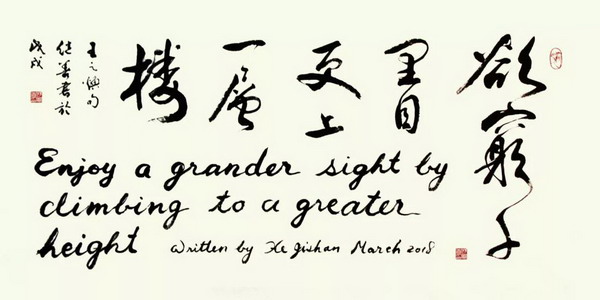 欲窮千
里目
更上
一層
樓
王之渙句
继善書於
戊戌
Enjoy a grander sight by
climbing to a greater
height
Written by He Jishan March 2018